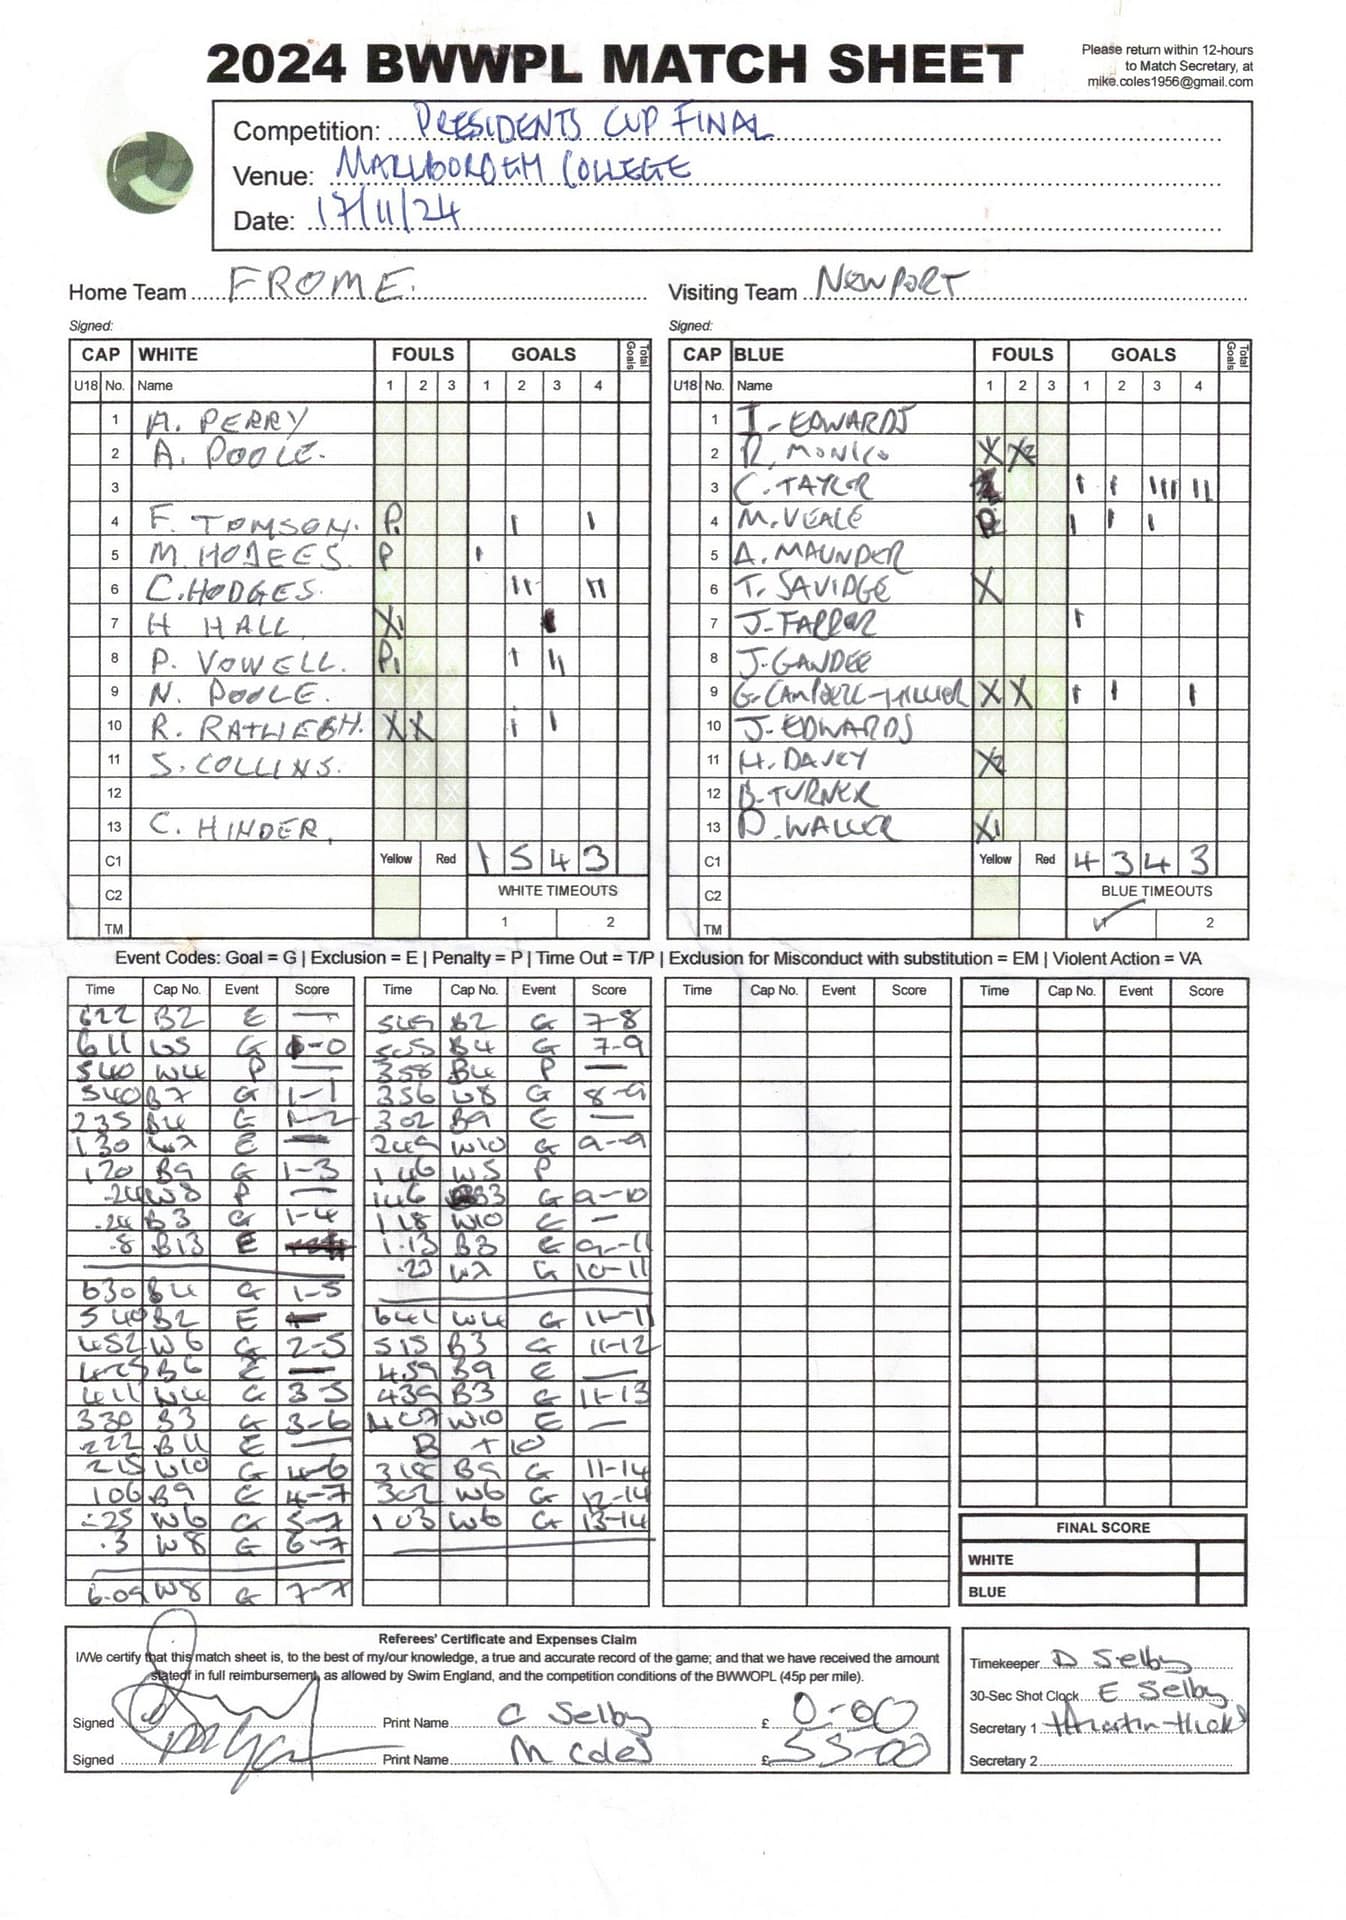 2024 BWWPL MATCH SHEET
Please return within 12-hours
to Match Secretary, at
mike.coles1956@gmail.com
Competition: PRESIDENTS CUP FINAL
Venue: MARLBOROUGH COLLEGE
Date: 17/11/24
Home Team FROME. Visiting Team NEWPORT
Signed: Signed:
CAP WHITE FOULS GOALS Total Goals CAP BLUE FOULS GOALS Total Goals
U18 No. Name 1 2 3 1 2 3 4 U18 No. Name 1 2 3 1 2 3 4
1 A. PERRY 1 I. EDWARDS
2 A. POOLE. 2 R. MONICO X X2
3 3 C. TAYLOR I I III II
4 F. TOMSON. P. I I 4 M. VEALE P I I I
5 M. HODGES. P I 5 A. MAUNDER
6 C. HODGES. II II 6 T. SAVIDGE X
7 H HALL X1 7 J. FARROR I
8 P. VOWELL. P1 I II 8 J. GANDEE
9 N. POOLE. 9 G. CAMPBELL-HILLIER X X I I I
10 R. RATLIEGH. X X I I 10 J. EDWARDS
11 S. COLLINS. 11 H. DAVEY X2
12 12 B. TURNER
13 C. HINDER. 13 D. WALLER X1
C1 Yellow Red 1 5 4 3 C1 Yellow Red 4 3 4 3
C2 WHITE TIMEOUTS C2 BLUE TIMEOUTS
TM 1 2 TM ✓ 2
Event Codes: Goal = G | Exclusion = E | Penalty = P | Time Out = T/P | Exclusion for Misconduct with substitution = EM | Violent Action = VA
Time Cap No. Event Score Time Cap No. Event Score Time Cap No. Event Score Time Cap No. Event Score
622 B2 E — 549 B2 G 7-8
611 W5 G 1-0 505 B4 G 7-9
540 W4 P — 358 B4 P —
540 B7 G 1-1 356 W8 G 8-9
235 B4 G 1-2 302 B9 E —
130 W7 E — 249 W10 G 9-9
120 B9 G 1-3 146 W5 P
.24 W8 P — 146 B3 G 9-10
.24 B3 G 1-4 118 W10 E —
.8 B13 E 1.13 B3 G 9-11
.23 W7 G 10-11
630 B4 G 1-5
540 B2 E — 641 W4 G 11-11
452 W6 G 2-5 515 B3 G 11-12
425 B6 E — 459 B9 E —
411 W4 G 3-5 439 B3 G 11-13
330 B3 G 3-6 407 W10 E —
222 B11 E — B T 10
215 W10 G 4-6 318 B9 G 11-14
106 B9 G 4-7 302 W6 G 12-14
.25 W6 G 5-7 103 W6 G 13-14
.3 W8 G 6-7
6.09 W8 G 7-7
FINAL SCORE
WHITE
BLUE
Referees' Certificate and Expenses Claim
I/We certify that this match sheet is, to the best of my/our knowledge, a true and accurate record of the game; and that we have received the amount
stated in full reimbursement, as allowed by Swim England, and the competition conditions of the BWWOPL (45p per mile).
Signed Print Name C Selby £ 0-00
Signed Print Name M Coles £ 55-00
Timekeeper D Selby
30-Sec Shot Clock E Selby
Secretary 1
Secretary 2